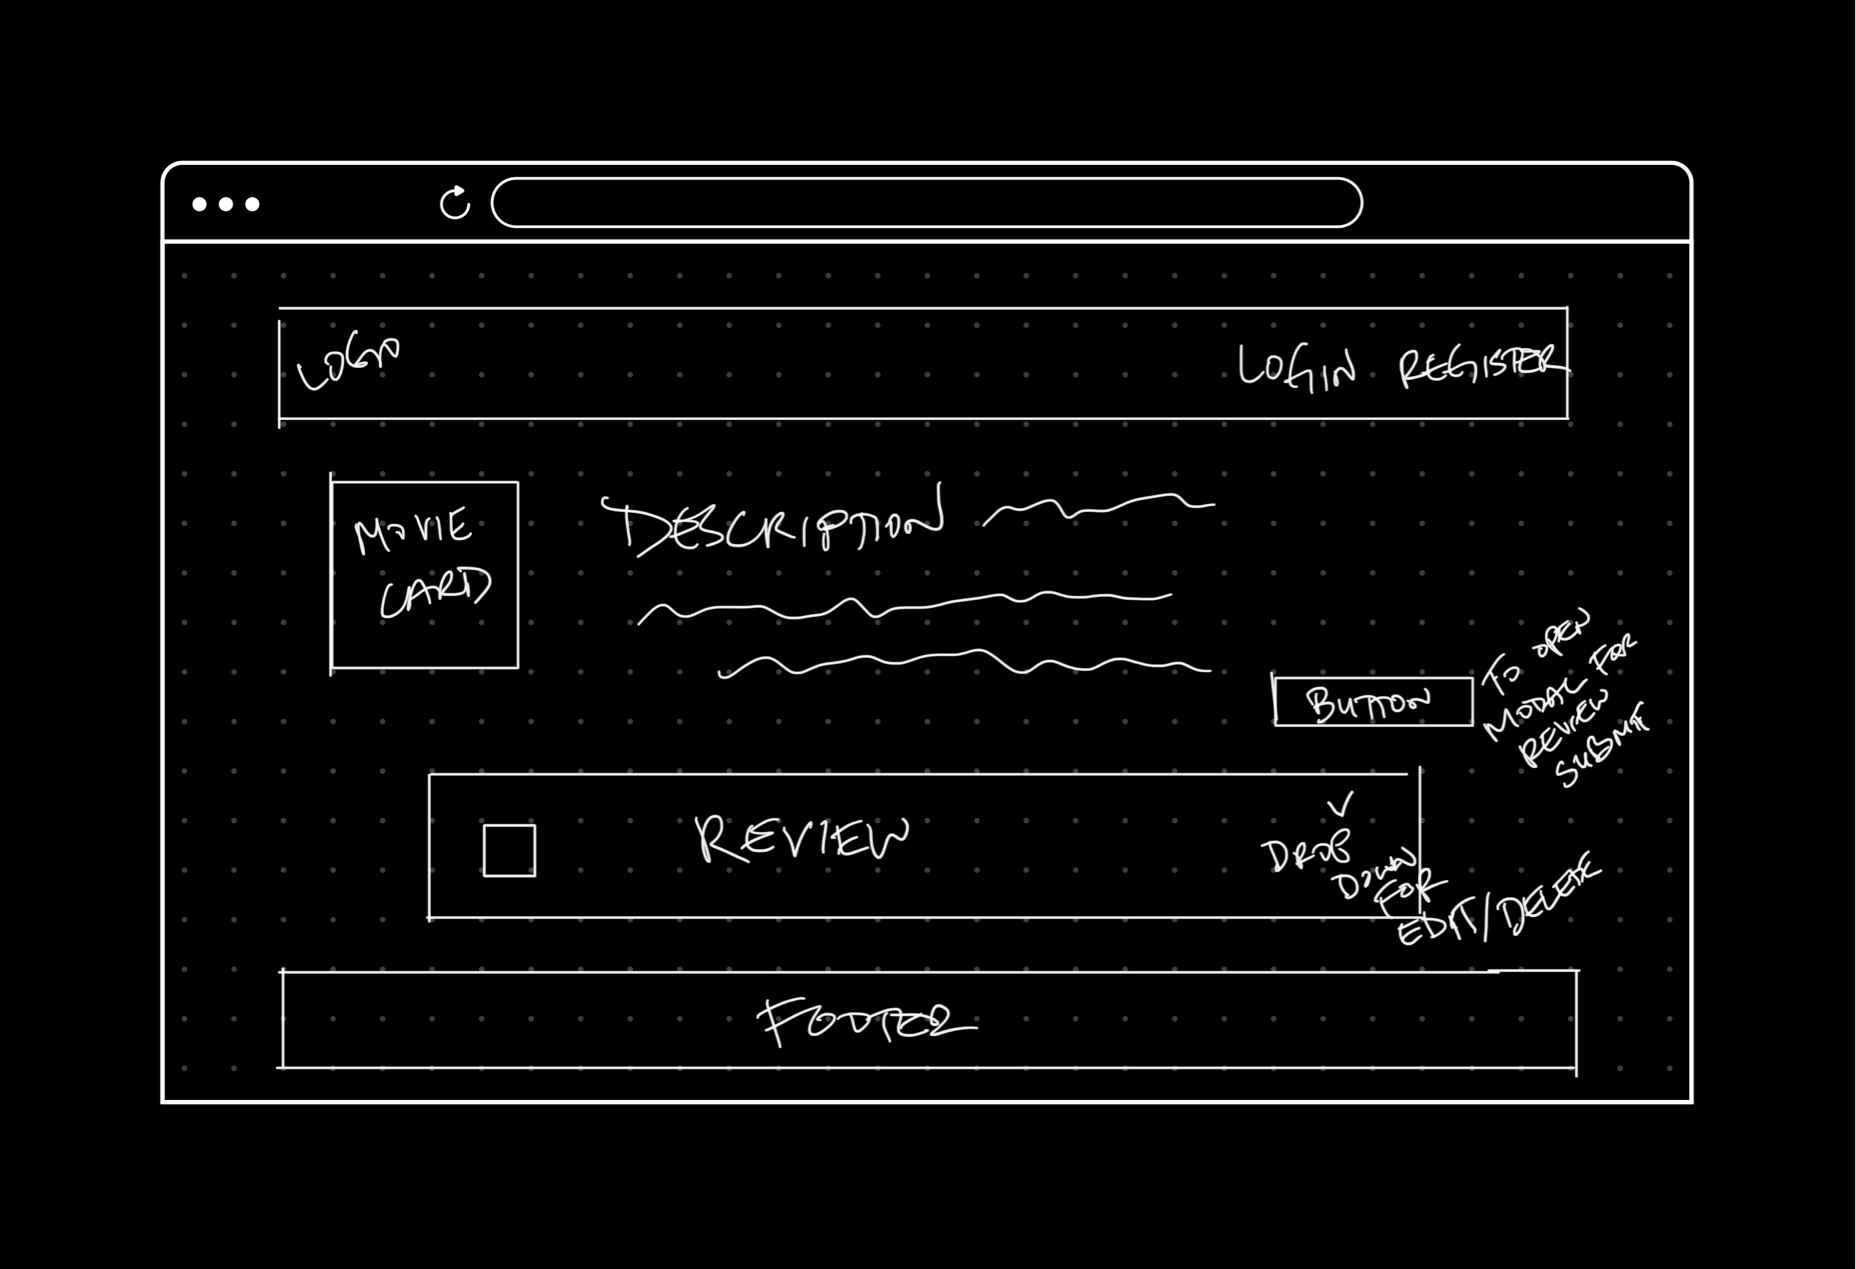 LOGO
LOGIN REGISTER
MOVIE
CARD
DESCRIPTION
BUTTON
TO OPEN
MODAL FOR
REVIEW
SUBMIT
REVIEW
DROP
DOWN
FOR
EDIT/DELETE
FOOTER